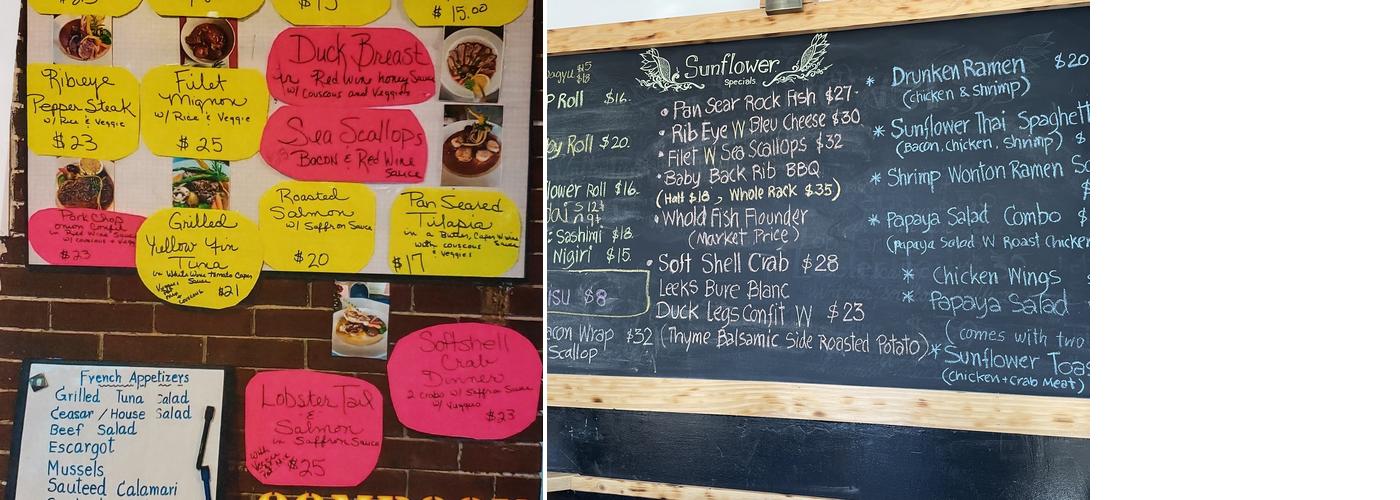 $ 15.00
Ribeye
Pepper Steak
w/ Rice & Veggie
$ 23
Filet
Mignon
w/ Rice & Veggie
$ 25
Duck Breast
in Red Wine honey Sauce
w/ Couscous and Veggies
Sea Scallops
Bacon & Red Wine
Sauce
Pork Chop
onion Confit
in Red Wine Sauce
w/ couscous + Vegg
$ 23
Grilled
Yellow Fin
Tuna
in White Wine tomato Caper
Sauce
$21
Roasted
Salmon
w/ Saffron Sauce
$ 20
Pan Seared
Tilapia
in a Butter, Caper Wine
Sauce
with couscous
& Veggies
$17
Softshell
Crab
Dinner
2 crabs w/ Saffron Sauce
w/ Veggies
$23
Lobster Tail
&
Salmon
in Saffron Sauce
$25
French Appetizers
Grilled Tuna Salad
Ceasar / House Salad
Beef Salad
Escargot
Mussels
Sauteed Calamari
Roll $16.
Roll $20.
lower Roll $16.
Sashimi $18.
Nigiri $15.
isu $8
acon Wrap $32
Scallop
Sunflower
Specials
• Pan Sear Rock Fish $27.
• Rib Eye W Bleu Cheese $30
• Filet W Sea Scallops $32
• Baby Back Rib BBQ
(Half $18, Whole Rack $35)
• Whold Fish Flounder
(Market Price)
• Soft Shell Crab $28
Leeks Bure Blanc
Duck Legs Confit W $23
(Thyme Balsamic Side Roasted Potato)
* Drunken Ramen $20
(chicken & shrimp)
* Sunflower Thai Spaghett
(Bacon, chicken, shrimp) $
* Shrimp Wonton Ramen So
$
* Papaya Salad Combo $
(papaya Salad W Roast Chicken
* Chicken Wings $
* Papaya Salad
(comes with two
* Sunflower Toas
(chicken + crab Meat)